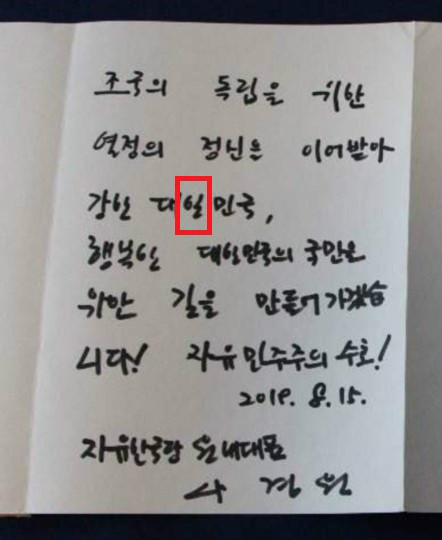 조국의 독립을 위한
열정의 정신을 이어받아
강한 대일민국,
행복한 대일민국의 국민을
위한 길을 만들어 가겠습
니다! 자유민주주의 수호!
2019. 8. 15.
자유한국당 원내대표
나 경 원